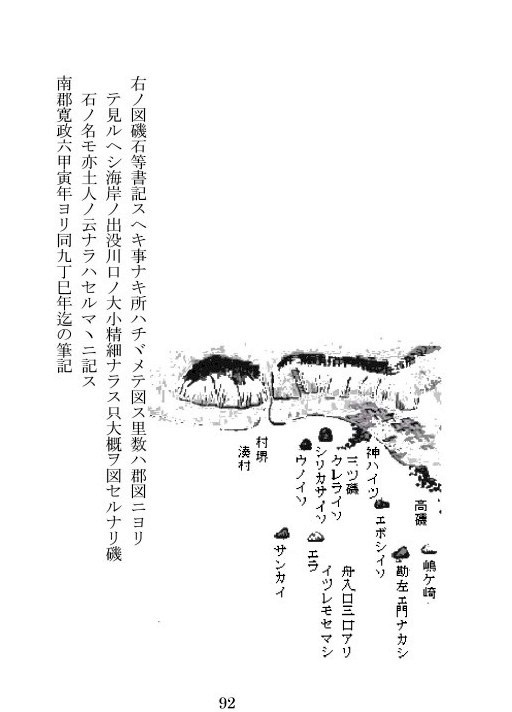 嶋ケ崎
高磯
勘左ヱ門ナカシ
ヱボシイソ
神ハイツ
舟入口三口アリ
イツレモセマシ
三ツ磯
クレライソ
シリカサイソ
エラ
ウノイソ
サンカイ
村堺
湊村
右ノ図磯石等書記スヘキ事ナキ所ハチヾメテ図ス里数ハ郡図ニヨリ
テ見ルヘシ海岸ノ出没川口ノ大小精細ナラス只大概ヲ図セルナリ磯
石ノ名モ亦土人ノ云ナラハセルマヽニ記ス
南郡寛政六甲寅年ヨリ同九丁巳年迄の筆記
92